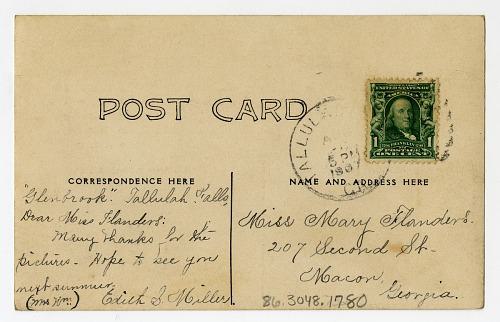 POST CARD
TALLULAH
5 PM
UNITED STATES OF AMERICA
1 FRANKLIN 1
POSTAGE
ONE CENT
CORRESPONDENCE HERE
"Glenbrook". Tallulah Falls,
Dear Miss Flanders:
Many thanks for the
pictures. Hope to see you
next summer.
(Mrs Wm.) Edith S. Miller
NAME AND ADDRESS HERE
Miss Mary Flanders.
207 Second St.
Macon.
Georgia.
86.3048.1780